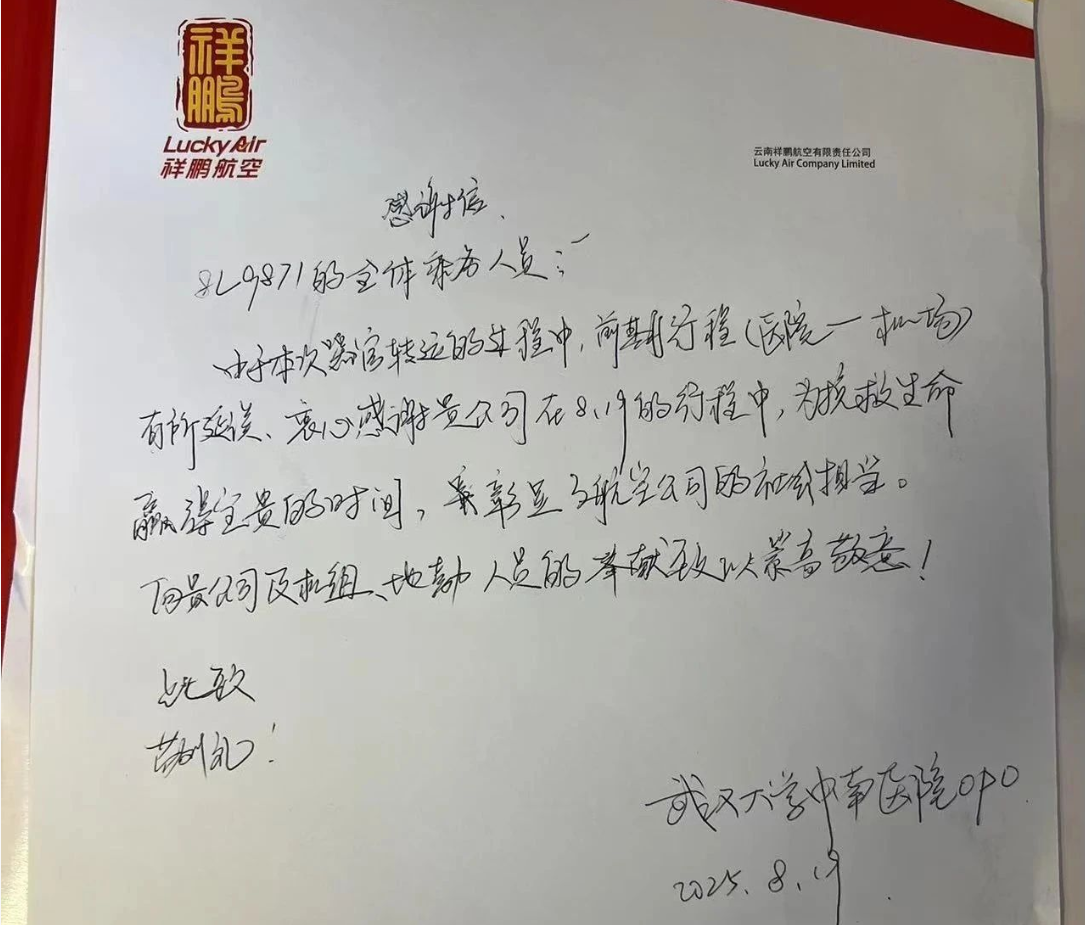 祥鹏
Lucky Air
祥鹏航空
云南祥鹏航空有限责任公司
Lucky Air Company Limited
感谢信
8L9871的全体乘务人员:
由于本次器官转运的过程中,前期行程(医院一机场)
有所延误、衷心感谢贵公司在8.19的行程中,为挽救生命
赢得宝贵的时间,彰显了航空公司的社会担当。
向贵公司及机组、地勤人员的奉献致以崇高敬意!
此致
敬礼!
武汉大学中南医院OPO
2025.8.19